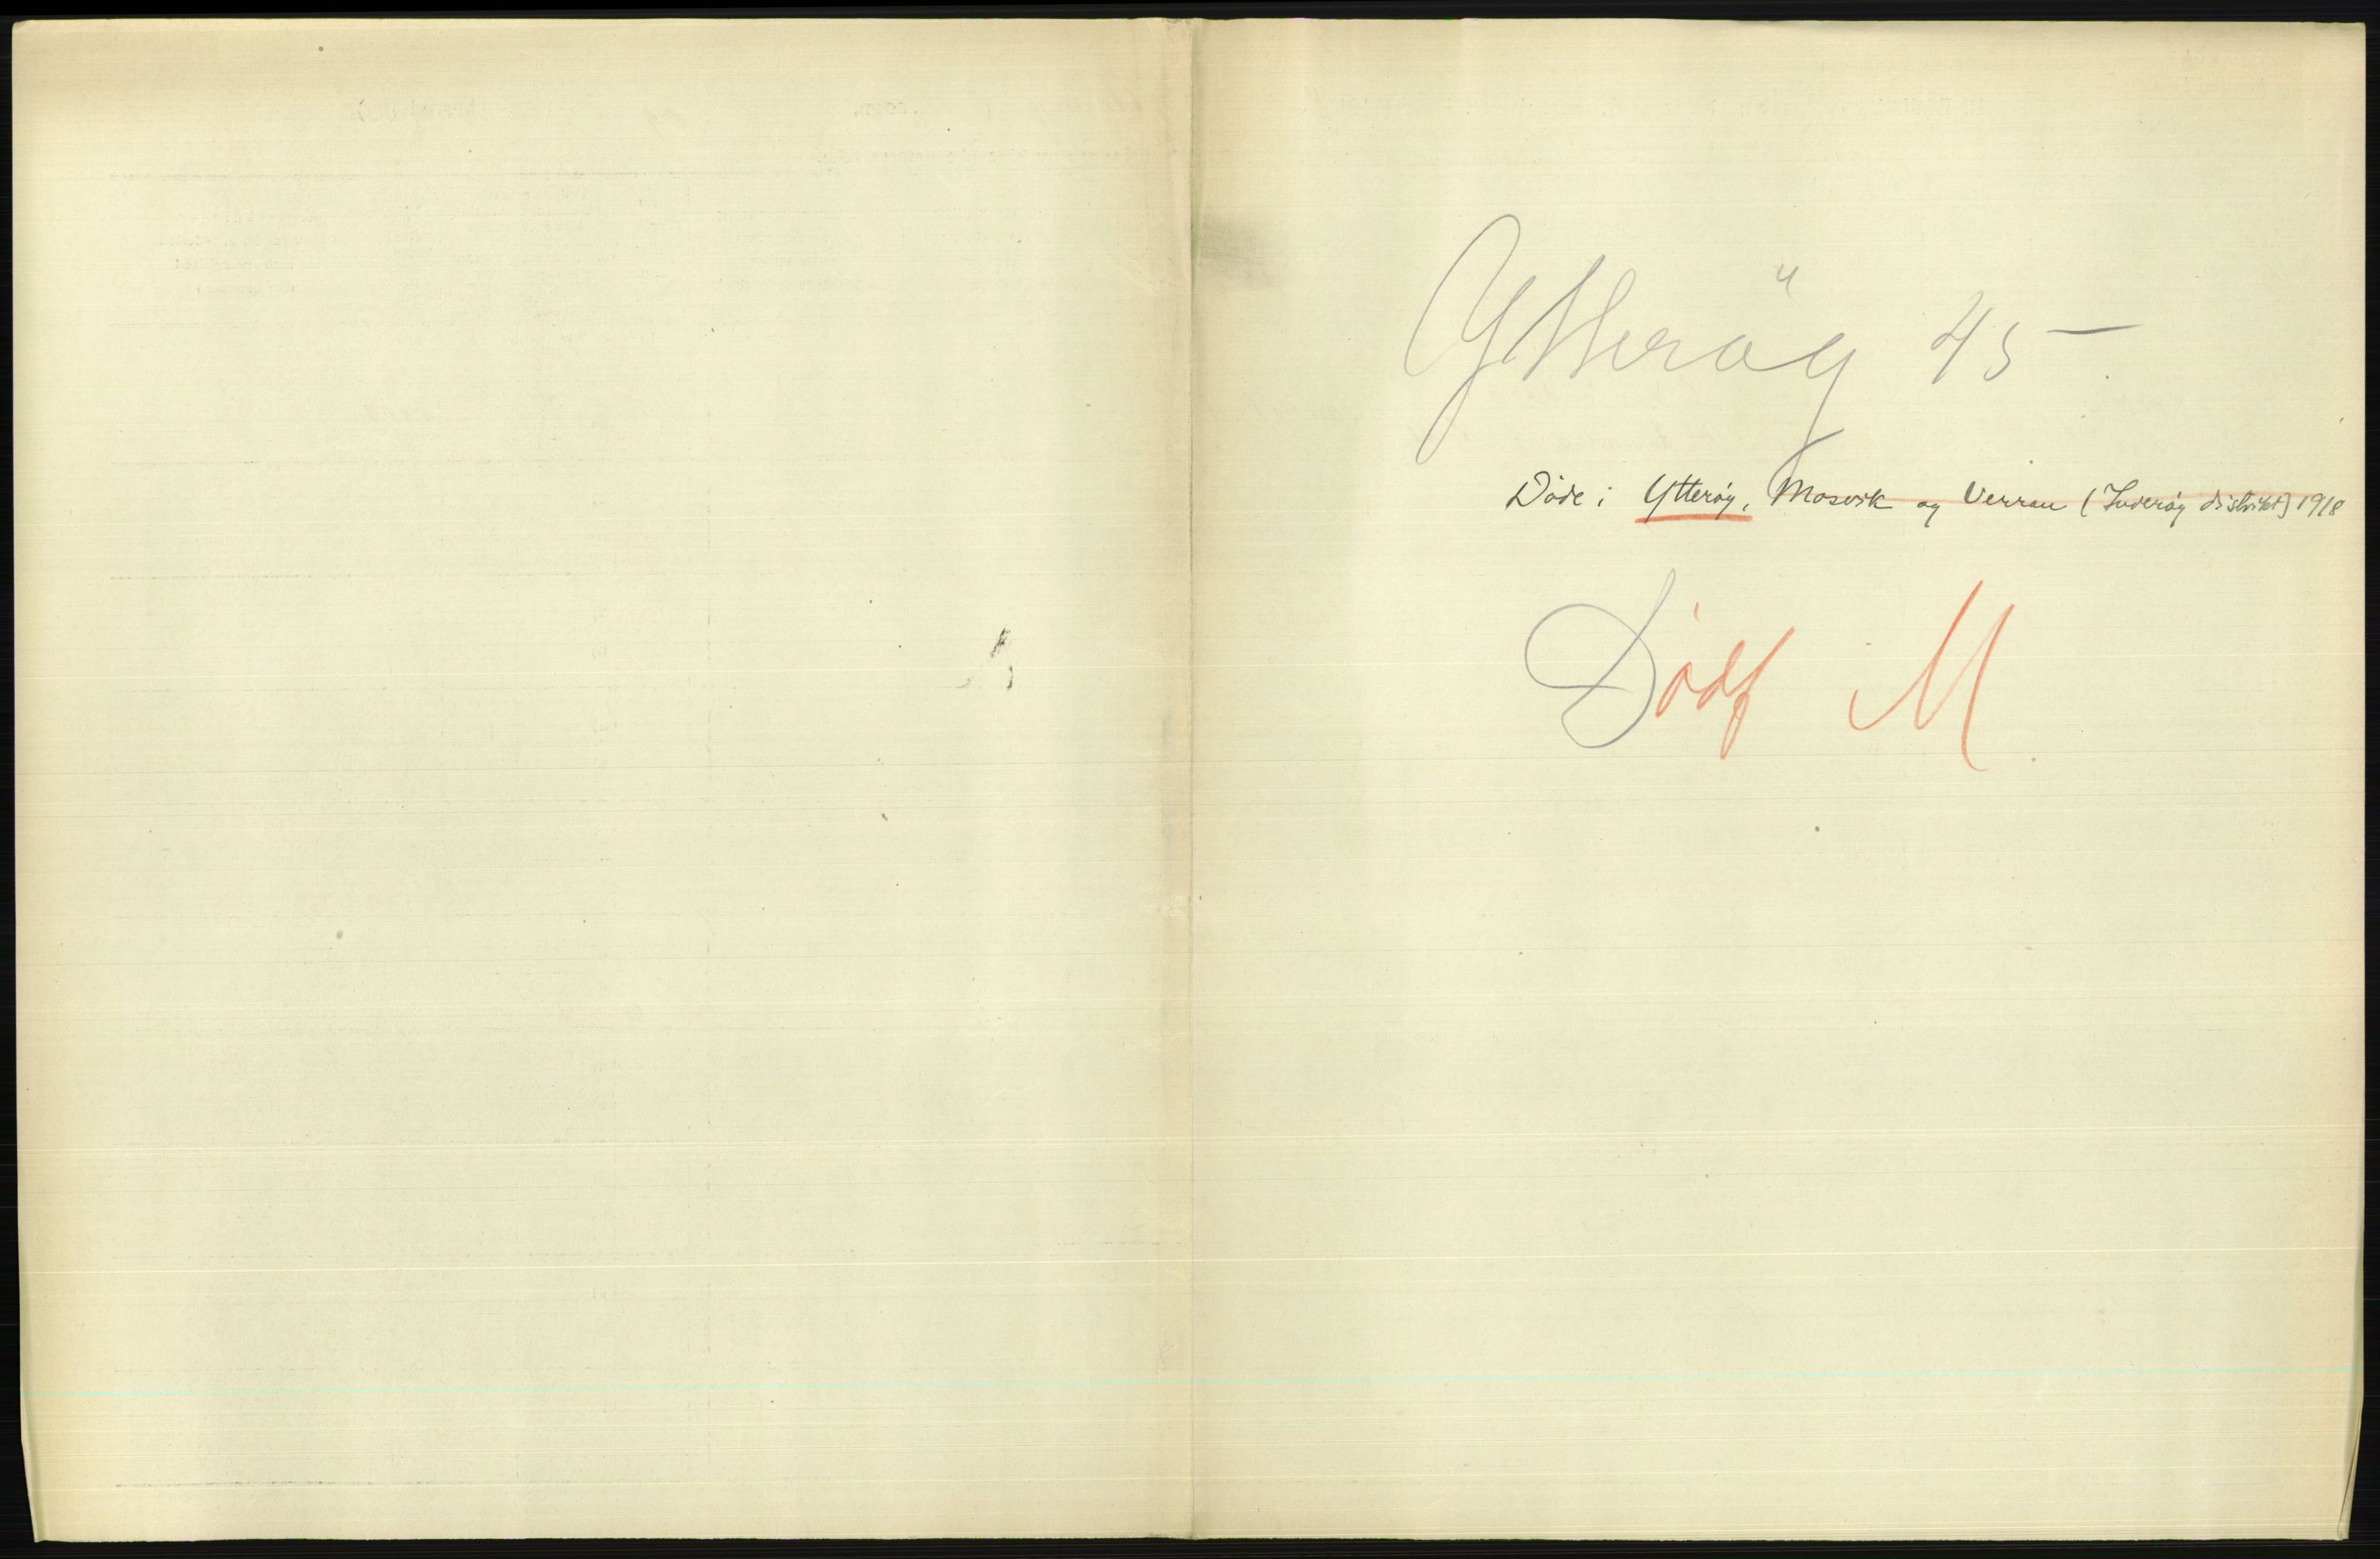 Ytterøy 45 –
Døde i Ytterøy, Mosvik og Verran (Inderøy distrikt) 1918
Dødf M